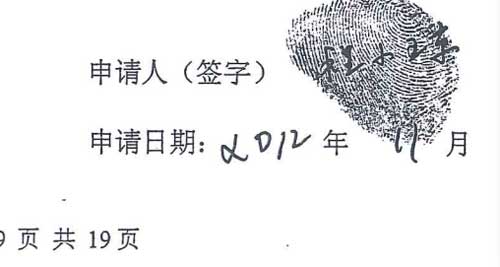 申请人（签字）
申请日期：2012 年 11 月
9 页 共 19 页